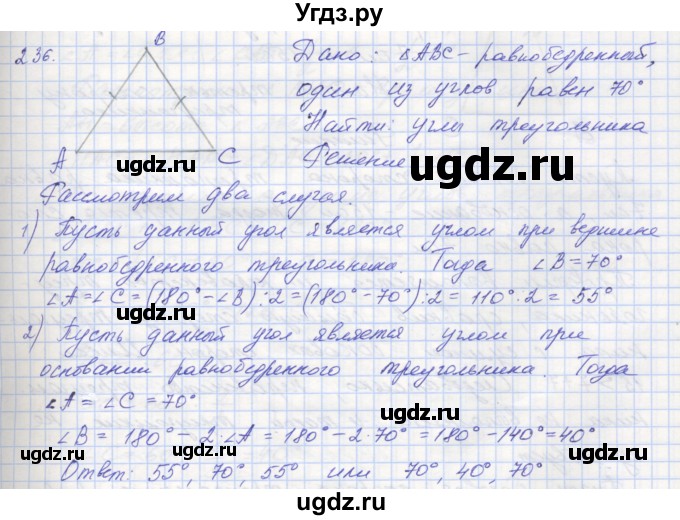 Угдз.ру
236.
B
A
C
Дано: ΔABC - равнобедренный,
один из углов равен 70°
Найти: углы треугольника
Решение
ugdz.ru ugdz.ru
Рассмотрим два случая.
1) Пусть данный угол является углом при вершине
равнобедренного треугольника. Тогда ∠B=70°
ugdz.ru ugdz.ru
∠A=∠C=(180°-∠B):2=(180°-70°):2=110°·2=55°
2) Пусть данный угол является углом при
ugdz.ru
основании равнобедренного треугольника. Тогда
∠A=∠C=70°
ugdz.ru ugdz.ru
∠B=180°-2·∠A=180°-2·70°=180°-140°=40°
Ответ: 55°, 70°, 55° или 70°, 40°, 70°
ugdz.ru ugdz.ru
ugdz.ru